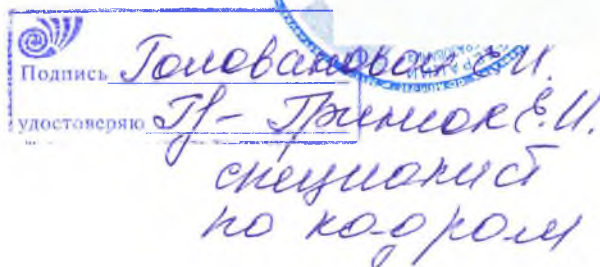 Подпись Головановой Е.И.
удостоверяю Гринюк Е.И.
специалист
по кадрам